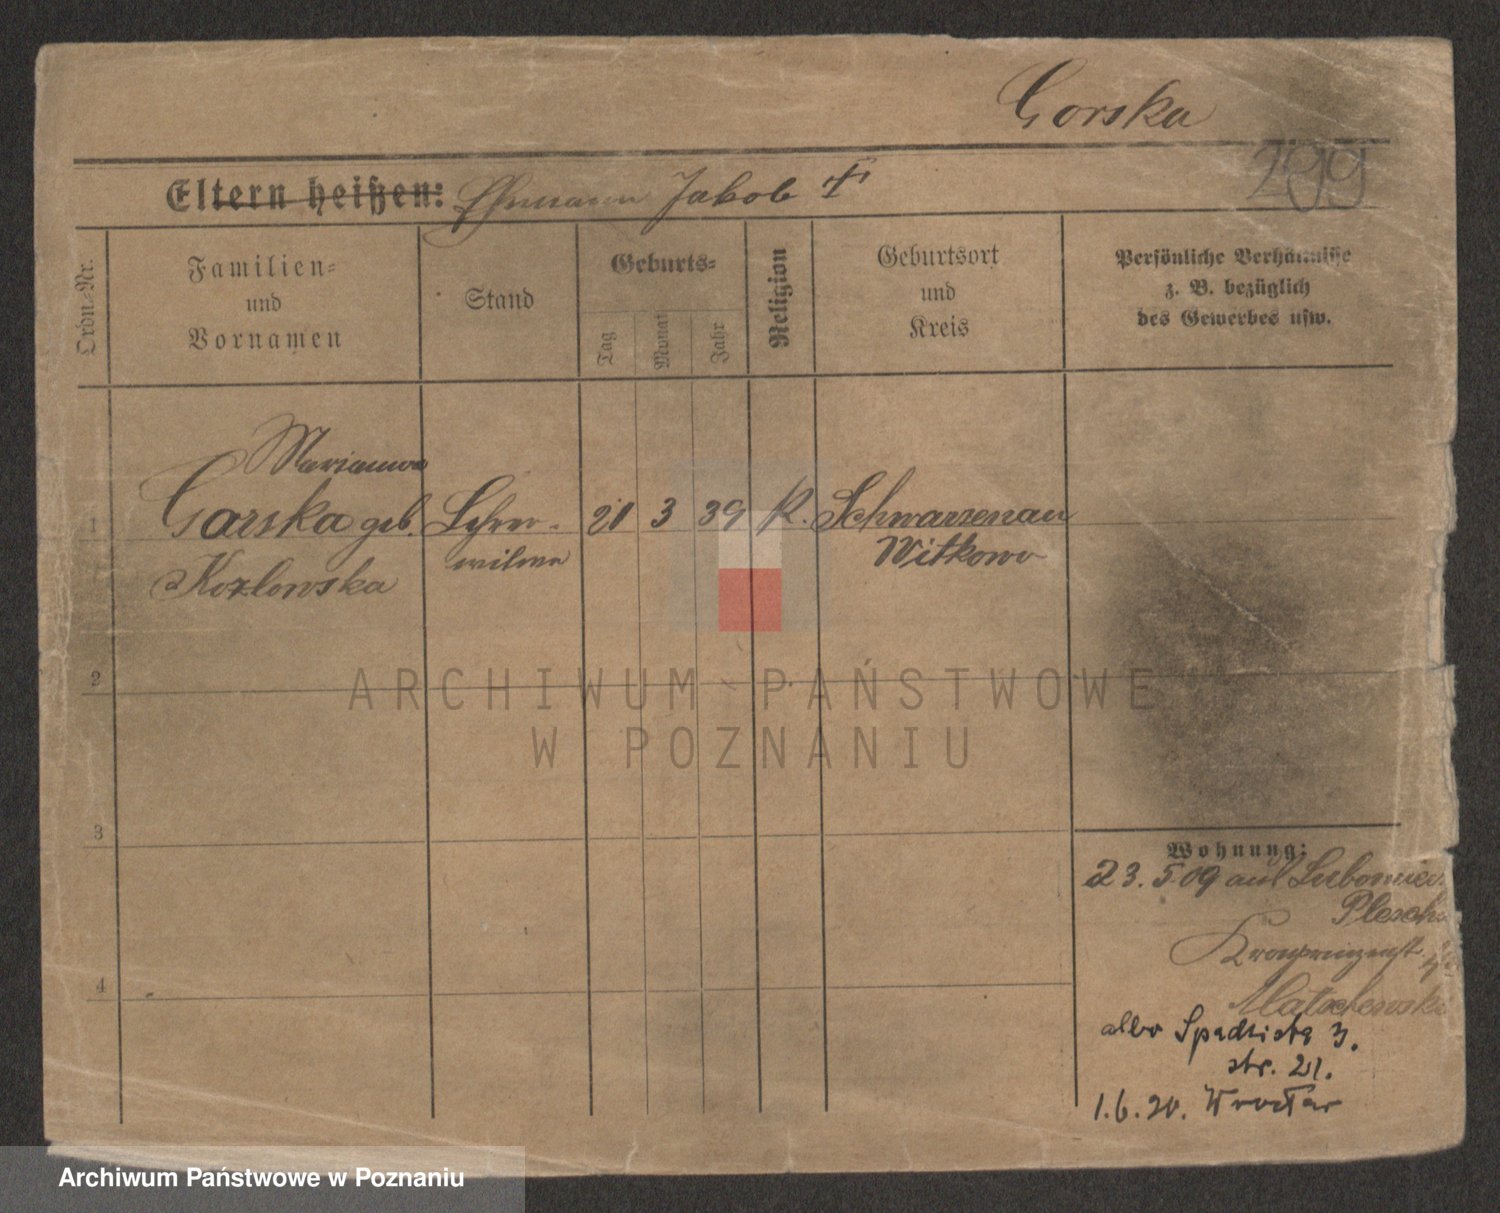 Gorska
299
Eltern heißen: Ehemann Jakob †
Ordn=Nr.
Familien=
und
Vornamen
Stand
Geburts=
Tag
Monat
Jahr
Religion
Geburtsort
und
Kreis
Persönliche Verhältnisse
z. B. bezüglich
des Gewerbes usw.
Marianna
1 Gorska geb. 21 3 39 K. Schwarzenau
Witkowo
Kozlowska
2
ARCHIWUM PAŃSTWOWE
W POZNANIU
3
Wohnung:
23.5.09 aus
Kronprinzenst
4
albo 3.
str. 21.
1.6.20.
Archiwum Państwowe w Poznaniu